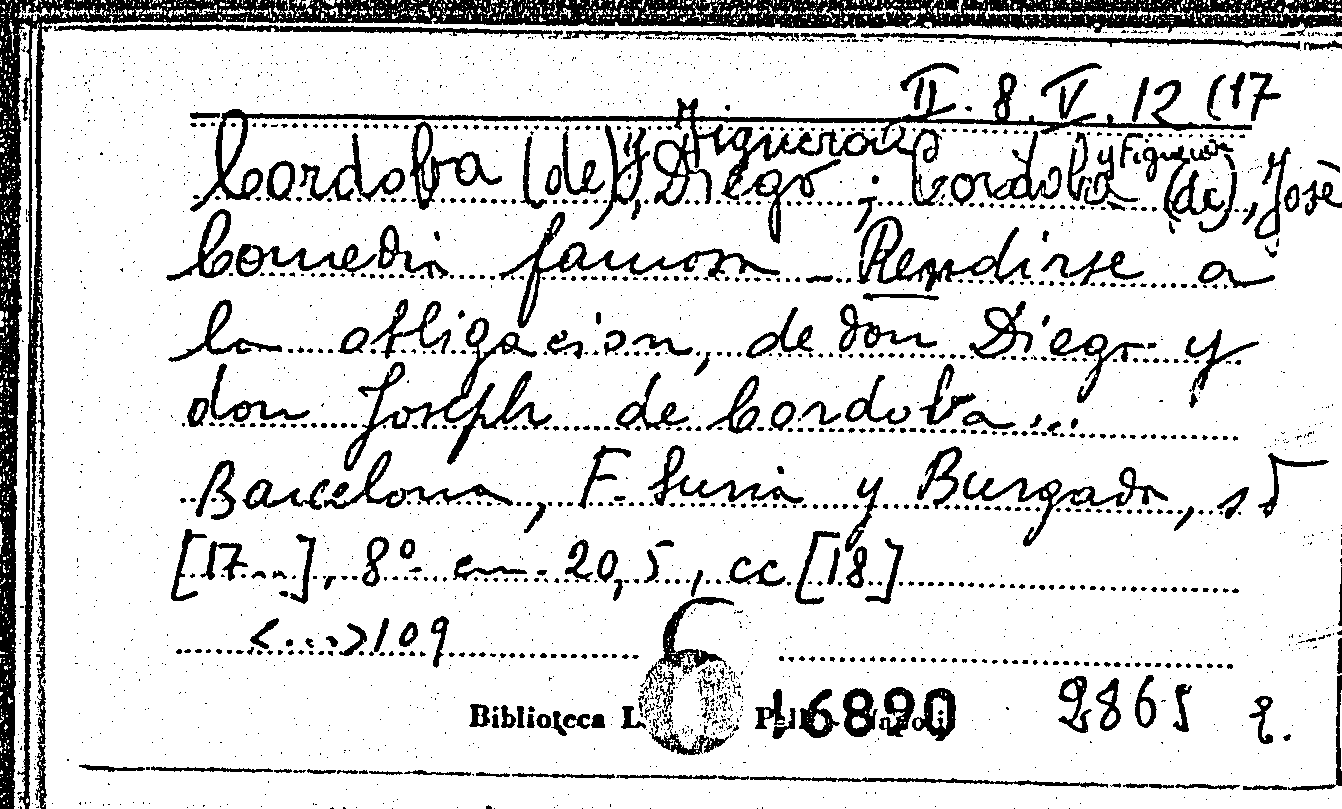 II. 8. V. 12 (17
Cordoba (de) y Figueroa, Diego ; Cordoba y Figueroa (de), Josè
Comedia famosa _ Rendirse a
la obligacion, de don Diego y
don Joseph de Cordoba...
Barcelona, F. Suria y Burgada, s
[17..], 8º cm. 20,5, cc [18]
<...>109
Biblioteca L. 16890 2865 q.